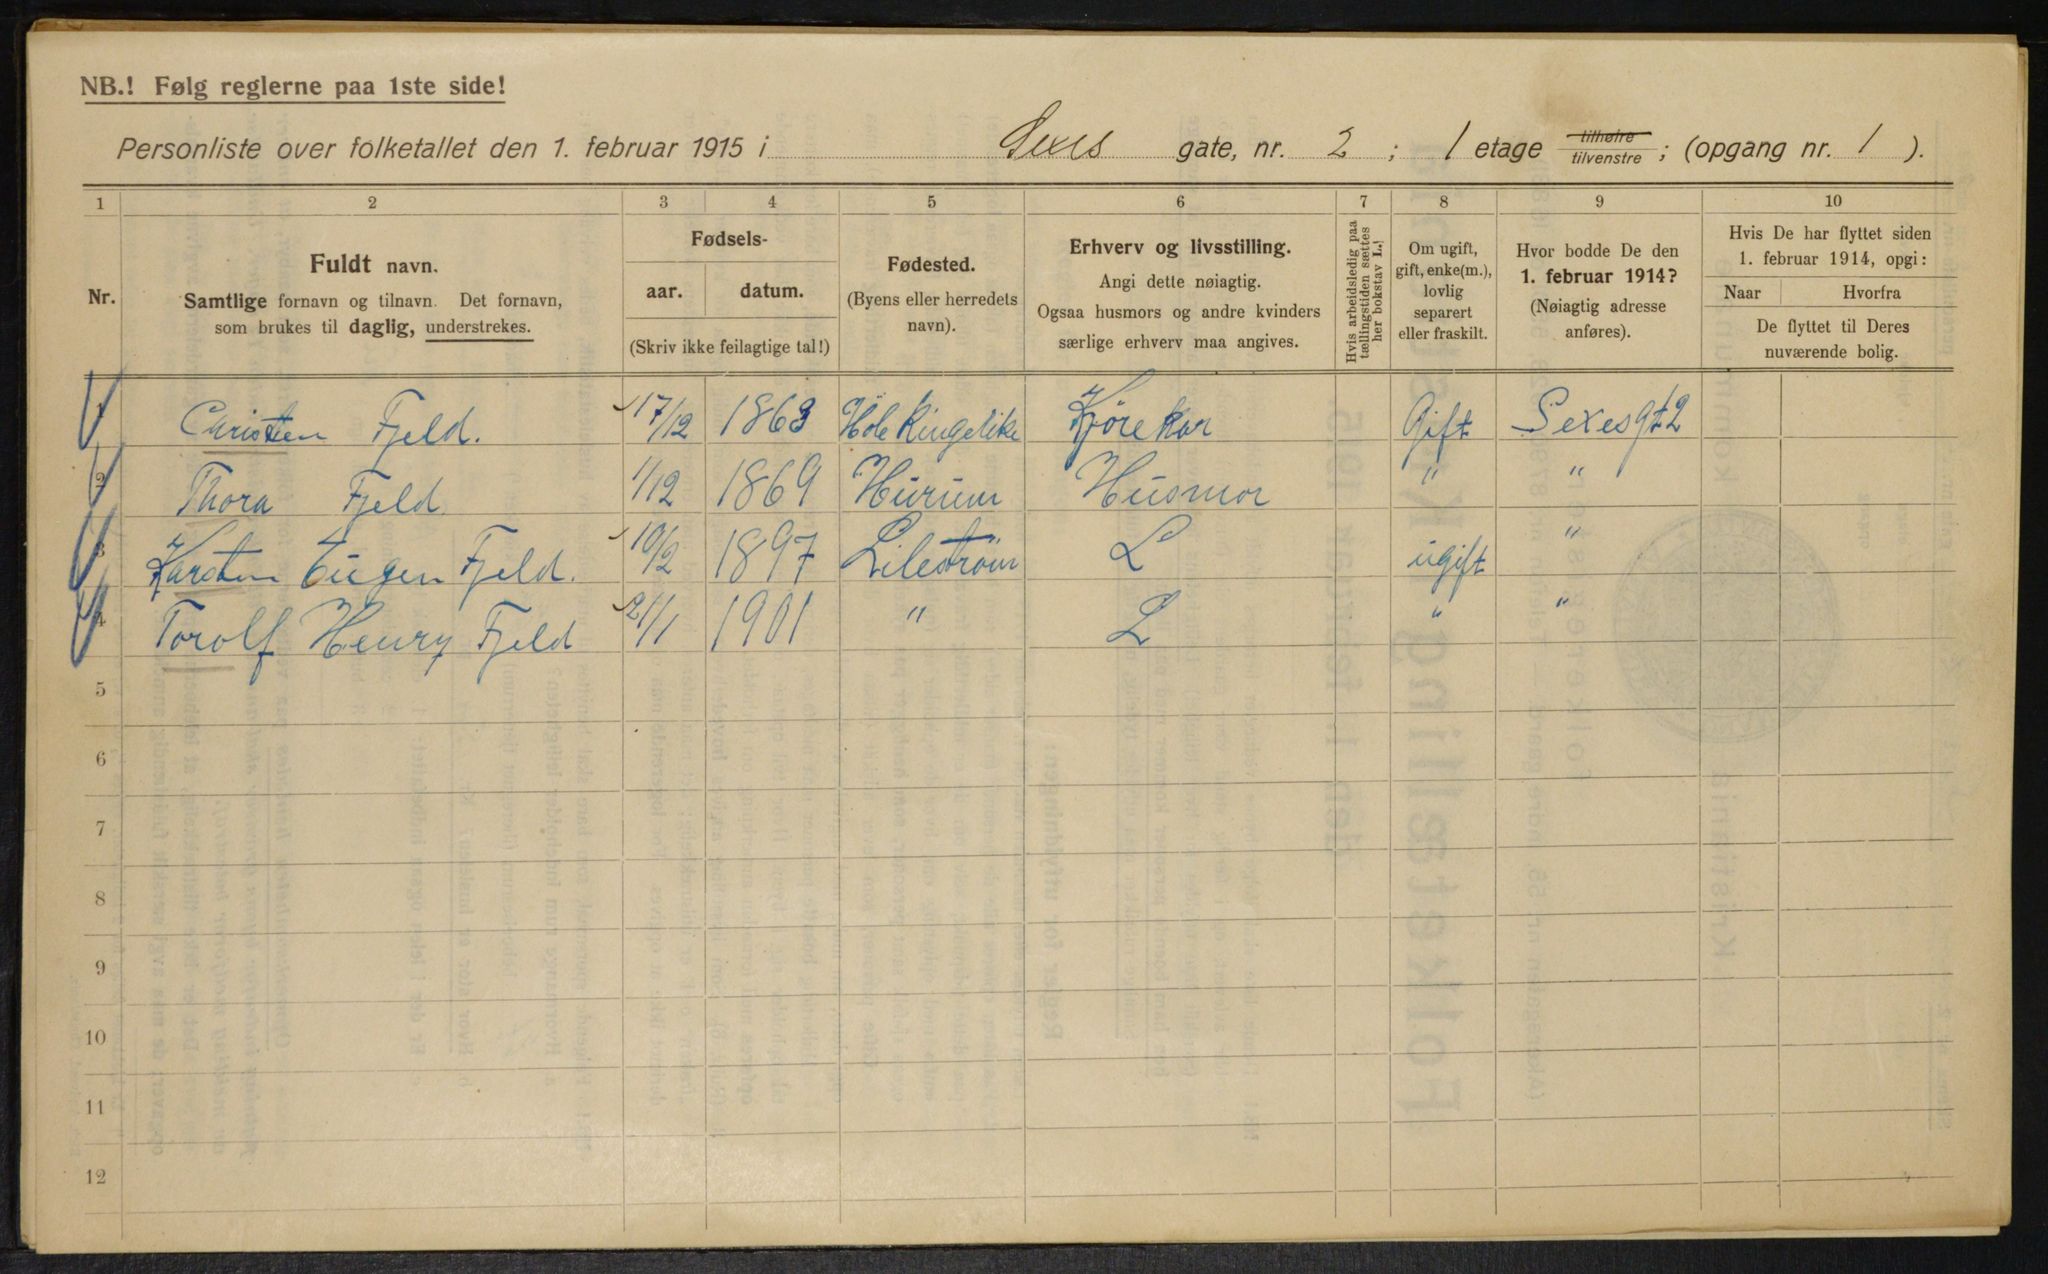 NB.! Følg reglerne paa 1ste side!
Personliste over folketallet den 1. februar 1915 i Sexes gate, nr. 2 ; 1 etage tilhøire tilvenstre ; (opgang nr. 1 ).
1 2 3 4 5 6 7 8 9 10
Nr.
Fuldt navn.
Samtlige fornavn og tilnavn. Det fornavn,
som brukes til daglig, understrekes.
Fødsels-
aar. datum.
(Skriv ikke feilagtige tal!)
Fødested.
(Byens eller herredets
navn).
Erhverv og livsstilling.
Angi dette nøiagtig.
Ogsaa husmors og andre kvinders
særlige erhverv maa angives.
Hvis arbeidsledig paa
tællingstiden sættes
her bokstav L.!
Om ugift,
gift, enke(m.),
lovlig
separert
eller fraskilt.
Hvor bodde De den
1. februar 1914?
(Nøiagtig adresse
anføres).
Hvis De har flyttet siden
1. februar 1914, opgi:
Naar Hvorfra
De flyttet til Deres
nuværende bolig.
1 Christen Fjeld. 17/12 1863 Hole Ringerike Kjørekar Gift Sexesgt 2
2 Thora Fjeld 1/12 1869 Hurum Husmor " "
3 Karsten Eugen Fjeld. 10/2 1897 Lilestrøm L ugift "
4 Torolf Henry Fjeld 21/1 1901 " L " "
5
6
7
8
9
10
11
12